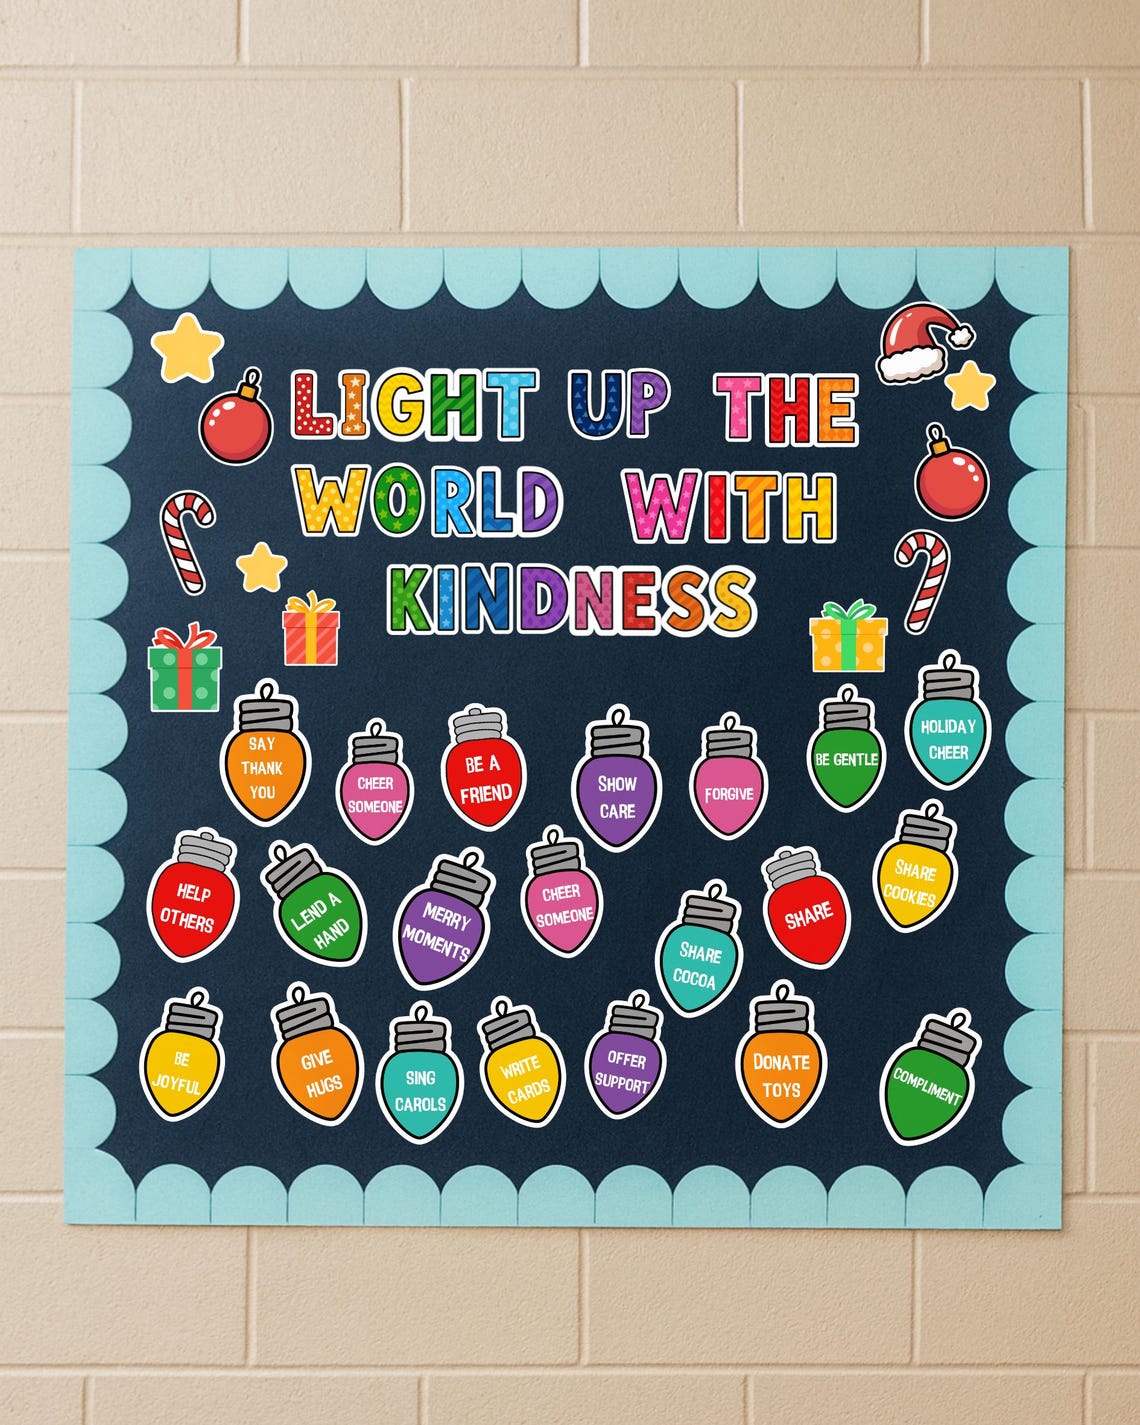 LIGHT UP THE
WORLD WITH
KINDNESS
SAY
THANK
YOU
CHEER
SOMEONE
BE A
FRIEND
SHOW
CARE
FORGIVE
BE GENTLE
HOLIDAY
CHEER
HELP
OTHERS
LEND A
HAND
MERRY
MOMENTS
CHEER
SOMEONE
SHARE
COCOA
SHARE
SHARE
COOKIES
BE
JOYFUL
GIVE
HUGS
SING
CAROLS
WRITE
CARDS
OFFER
SUPPORT
DONATE
TOYS
COMPLIMENT